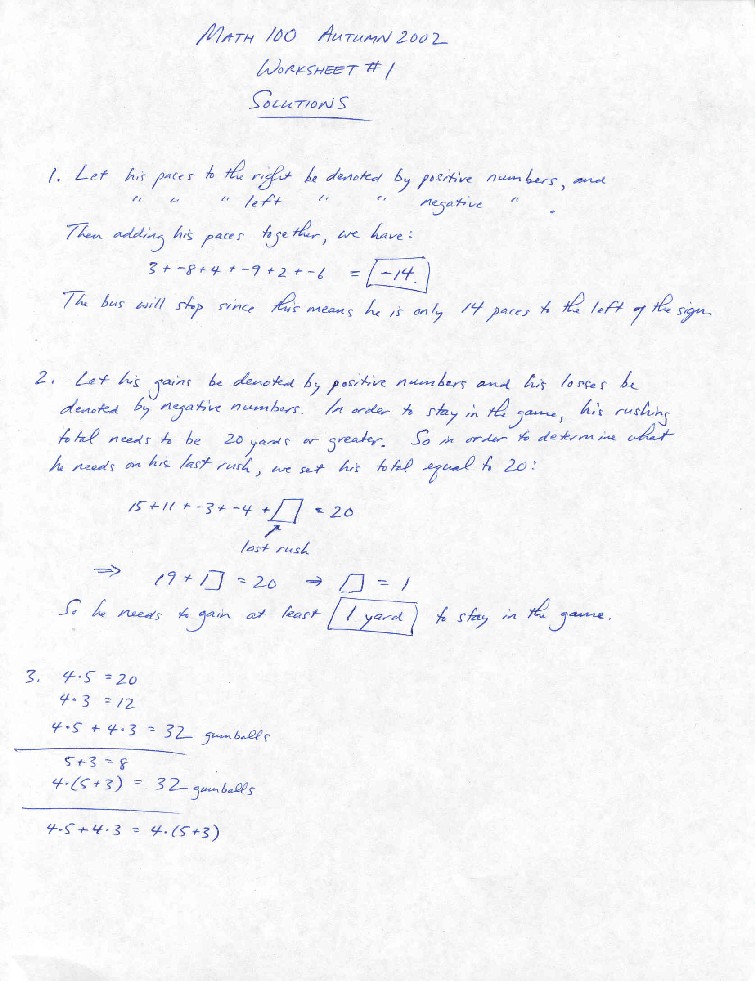 MATH 100 AUTUMN 2002
WORKSHEET #1
SOLUTIONS
1. Let his paces to the right be denoted by positive numbers, and
" " " left " " negative " .
Then adding his paces together, we have:
3 + -8 + 4 + -9 + 2 + -6 = -14.
The bus will stop since this means he is only 14 paces to the left of the sign.
2. Let his gains be denoted by positive numbers and his losses be
denoted by negative numbers. In order to stay in the game, his rushing
total needs to be 20 yards or greater. So in order to determine what
he needs on his last rush, we set his total equal to 20:
15 + 11 + -3 + -4 + □ = 20
last rush
⇒ 19 + □ = 20 ⇒ □ = 1
So he needs to gain at least 1 yard to stay in the game.
3. 4·5 = 20
4·3 = 12
4·5 + 4·3 = 32 gumballs
5+3 = 8
4·(5+3) = 32 gumballs
4·5 + 4·3 = 4·(5+3)